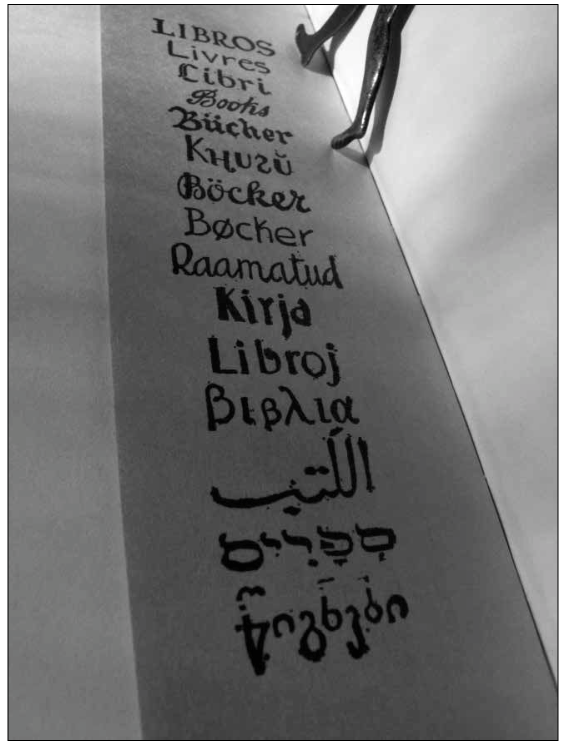 LIBROS
Livres
Libri
Books
Bücher
Книгй
Böcker
Bøcher
Raamatud
Kirja
Libroj
Βιβλια
الكتب
סְפָרִים
წიგნები